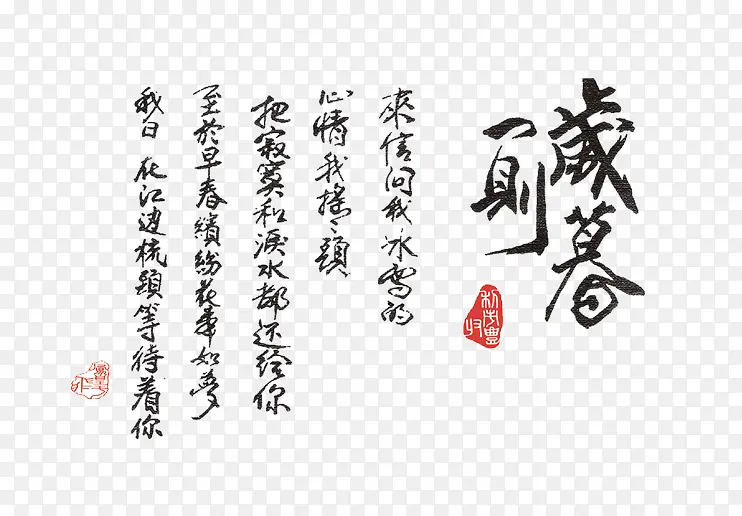 歲暮
一則
來信问我冰雪的
心情我搖々頭
把寂寞和淚水都还给你
至於早春繽紛花事如夢
我日在江边梳頭等待着你